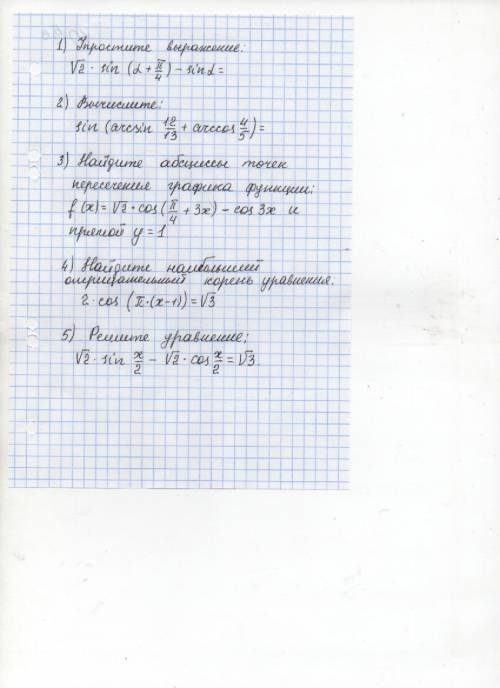 1) Упростите выражение:
√2 · sin (α + π/4) − sin α =
2) Вычислите:
sin (arcsin 12/13 + arccos 4/5) =
3) Найдите абсциссы точек
пересечения графика функции:
f(x) = √2 · cos (π/4 + 3x) − cos 3x и
прямой y = 1
4) Найдите наибольший
отрицательный корень уравнения:
2 · cos (π · (x − 1)) = √3
5) Решите уравнение:
√2 · sin x/2 − √2 · cos x/2 = √3